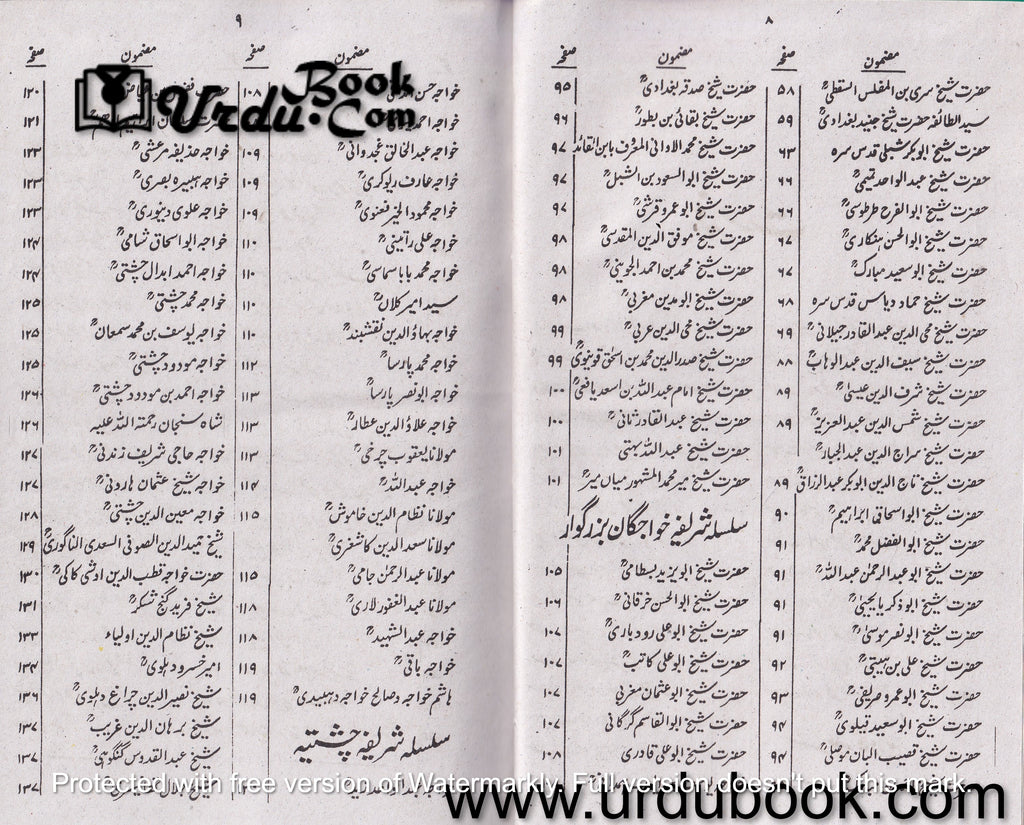 ۸
مضمون صفحہ
حضرت شیخ سری بن المفلس السقطیؒ ۵۸
سید الطائفہ حضرت شیخ جنید بغدادیؒ ۵۹
حضرت شیخ ابوبکر شبلی قدس سرہ ۶۳
حضرت شیخ عبدالواحد تمیمیؒ ۶۶
حضرت شیخ ابوالفرح طرطوسیؒ ۶۶
حضرت شیخ ابوالحسن ہنکاریؒ ۶۷
حضرت شیخ ابو سعید مبارکؒ ۶۷
حضرت شیخ حماد دباس قدس سرہ ۶۸
حضرت شیخ محی الدین عبدالقادر جیلانیؒ ۶۹
حضرت شیخ سیف الدین عبدالوہابؒ ۸۸
حضرت شیخ شرف الدین عیسیٰؒ ۸۹
حضرت شیخ شمس الدین عبدالعزیزؒ ۸۹
حضرت شیخ سراج الدین عبدالجبارؒ
حضرت شیخ تاج الدین ابوبکر عبدالرزاقؒ ۸۹
حضرت شیخ ابواسحاقی ابراہیمؒ ۹۰
حضرت شیخ ابوالفضل محمدؒ ۹۱
حضرت شیخ ابو عبدالرحمٰن عبداللہؒ ۹۱
حضرت شیخ ابو ذکریا یحییٰؒ ۹۱
حضرت شیخ ابو نصر موسیٰؒ ۹۱
حضرت شیخ علی بن ہیتیؒ ۹۲
حضرت شیخ ابو عمرو صریفیؒ ۹۳
حضرت شیخ ابو سعید قیلویؒ ۹۴
حضرت شیخ قضیب البان موصلیؒ ۹۴
مضمون صفحہ
حضرت شیخ صدقہ بغدادیؒ ۹۵
حضرت شیخ بقائی بن بطورؒ ۹۶
حضرت شیخ محمد الاوانی المعروف بابن القائد ۹۷
حضرت شیخ ابوالسعود بن الشبلؒ ۹۷
حضرت شیخ ابو عمرو قرشیؒ ۹۷
حضرت شیخ موفق الدین المقدسیؒ ۹۸
حضرت شیخ محمد بن احمد الجوینیؒ ۹۸
حضرت شیخ ابو مدین مغربیؒ ۹۸
حضرت شیخ محی الدین عربیؒ ۹۹
حضرت شیخ صدر الدین محمد بن اسحٰق قونیویؒ ۹۹
حضرت شیخ امام عبداللہ بن اسعد یافعیؒ ۱۰۰
حضرت شیخ عبدالقادر ثانیؒ ۱۰۰
حضرت شیخ عبداللہ بہتی ۱۰۱
حضرت شیخ میر محمد المشہور میاں میرؒ ۱۰۱
سلسلہ شریفہ خواجگان بزرگوار
حضرت شیخ ابو یزید بسطامیؒ ۱۰۵
حضرت شیخ ابوالحسن خرقانیؒ ۱۰۶
حضرت شیخ ابو علی رودباریؒ ۱۰۷
حضرت شیخ ابو علی کاتبؒ ۱۰۷
حضرت شیخ ابو عثمان مغربی ۱۰۷
حضرت شیخ ابوالقاسم گرگانی ۱۰۷
حضرت شیخ ابو علی قادری ۱۰۸
۹
مضمون صفحہ
خواجہ حسن ۱۰۸
خواجہ احمد
خواجہ عبدالخالق غجدوانیؒ ۱۰۹
خواجہ عارف ریوگریؒ ۱۰۹
خواجہ محمود الخیر فغنویؒ ۱۰۹
خواجہ علی رامتینیؒ ۱۱۰
خواجہ محمد بابا سماسیؒ ۱۱۰
سید امیر کلالؒ ۱۱۰
خواجہ بہاؤ الدین نقشبندؒ ۱۱۰
خواجہ محمد پارساؒ ۱۱۲
خواجہ ابونصر پارساؒ ۱۱۳
خواجہ علاؤ الدین عطارؒ ۱۱۳
مولانا یعقوب چرخیؒ ۱۱۳
خواجہ عبداللہؒ ۱۱۴
مولانا نظام الدین خاموشؒ ۱۱۵
مولانا سعد الدین کاشغریؒ
مولانا عبدالرحمٰن جامیؒ ۱۱۵
مولانا عبدالغفور لاریؒ ۱۱۸
خواجہ عبدالشہیدؒ ۱۱۸
خواجہ باقیؒ ۱۱۹
ہاشم خواجہ و صالح خواجہ دہبیدیؒ ۱۱۹
سلسلہ شریفہ چشتیہ
مضمون صفحہ
۱۲۰
۱۲۱
خواجہ حذیفہ مرعشیؒ ۱۲۳
خواجہ ہبیرہ بصریؒ ۱۲۳
خواجہ علوی دینوریؒ ۱۲۳
خواجہ ابو اسحاق شامیؒ ۱۲۴
خواجہ احمد ابدال چشتیؒ ۱۲۴
خواجہ محمد چشتیؒ ۱۲۵
خواجہ یوسف بن محمد سمعانؒ ۱۲۵
خواجہ مودود چشتیؒ ۱۲۵
خواجہ احمد بن مودود چشتیؒ ۱۲۶
شاہ سنجان رحمتہ اللہ علیہ ۱۲۶
خواجہ حاجی شریف زندنیؒ ۱۲۷
خواجہ شیخ عثمان ہارونیؒ ۱۲۷
خواجہ معین الدین چشتیؒ ۱۲۸
شیخ حمید الدین الصوفی السعدی الناگوریؒ ۱۲۹
حضرت خواجہ قطب الدین اوشی کاکیؒ ۱۳۰
شیخ فرید گنج شکرؒ ۱۳۱
شیخ نظام الدین اولیاء ۱۳۳
امیر خسرو دہلویؒ ۱۳۴
شیخ نصیر الدین چراغ دہلویؒ ۱۳۶
شیخ برہان الدین غریبؒ ۱۳۷
شیخ عبدالقدوس گنگوہیؒ ۱۳۷
۱۳۷
UrduBook.Com
Protected with free version of Watermarkly. Full version doesn't put this mark.
www.urdubook.com